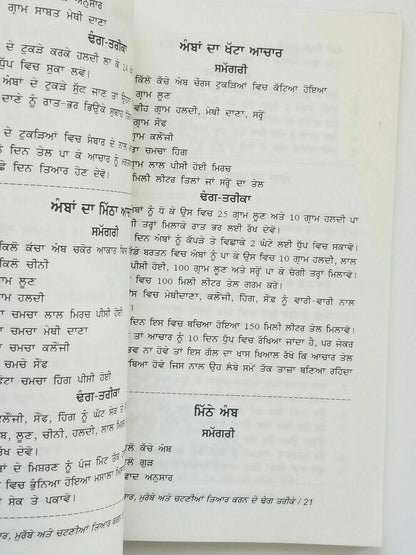 ਗ੍ਰਾਮ ਸਾਬਤ ਮੇਥੀ ਦਾਣਾ
ਢੰਗ-ਤਰੀਕਾ
ਦੇ ਟੁਕੜੇ ਕਰਕੇ ਹਲਦੀ ਲਾ ਕੇ 24
ਧੁੱਪ ਵਿਚ ਸੁਕਾ ਲਵੋ।
ਅੰਬਾਂ ਦੇ ਟੁਕੜੇ ਸੁੱਟ ਜਾਣ ਤਾਂ
ਦਾਣੇ ਨੂੰ ਰਾਤ-ਭਰ ਭਿਉਂਕੇ
ਦੇ ਟੁਕੜਿਆਂ ਵਿਚ ਸੰਬਾਰ ਦੇ ਨਾਲ
ਦਿਨ ਤੇਲ ਪਾ ਕੇ ਆਚਾਰ ਨੂੰ
ਦਿਨ ਤਿਆਰ ਹੋਣ ਦੇਵੋ।
ਅੰਬਾਂ ਦਾ ਮਿੱਠਾ
ਸਮੱਗਰੀ
ਕਿਲੋ ਕੱਚਾ ਅੰਬ ਚਕੋਰ ਆਕਾਰ ਵਿਚ
ਕਿਲੋ ਚੀਨੀ
ਗ੍ਰਾਮ ਲੂਣ
ਗ੍ਰਾਮ ਹਲਦੀ
ਚਮਚਾ ਲਾਲ ਮਿਰਚ ਪੀਸੀ ਹੋਈ
ਚਮਚਾ ਮੇਥੀ ਦਾਣਾ
ਚਮਚਾ ਕਲੌਂਜੀ
ਚਮਚੇ ਸੌਂਫ
ਚਮਚਾ ਹਿੰਗ ਪੀਸੀ ਹੋਈ
ਢੰਗ-ਤਰੀਕਾ
ਕਲੌਂਜੀ, ਸੌਂਫ, ਹਿੰਗ ਨੂੰ ਘੱਟ ਸੇਕ ਤੇ
ਲੂਣ, ਚੀਨੀ, ਹਲਦੀ, ਲਾਲ
ਰੱਖ ਦੇਵੋ।
ਦੇ ਮਿਸ਼ਰਣ ਨੂੰ ਪੰਜ ਮਿੰਟ ਤੇਕ
ਵਿਚ ਭੁੰਨਿਆ ਹੋਇਆ ਮਸਾਲਾ
ਸੇਕ ਤੇ ਪਕਾਵੋ।
ਅੰਬਾਂ ਦਾ ਖੱਟਾ ਆਚਾਰ
ਸਮੱਗਰੀ
ਕਿੱਲੋ ਕੱਚੇ ਅੰਬ ਚੌਰਸ ਟੁਕੜਿਆਂ ਵਿਚ ਕੱਟਿਆ ਹੋਇਆ
ਗ੍ਰਾਮ ਲੂਣ
ਵੀਹ ਗ੍ਰਾਮ ਹਲਦੀ, ਮੇਥੀ ਦਾਣਾ, ਸਰ੍ਹੋਂ
ਗ੍ਰਾਮ ਸੌਂਫ
ਗ੍ਰਾਮ ਕਲੌਂਜੀ
ਚਮਚਾ ਹਿੰਗ
ਗ੍ਰਾਮ ਲਾਲ ਪੀਸੀ ਹੋਈ ਮਿਰਚ
ਮਿਲੀ ਲੀਟਰ ਤਿਲਾਂ ਜਾਂ ਸਰ੍ਹੋਂ ਦਾ ਤੇਲ
ਢੰਗ-ਤਰੀਕਾ
ਅੰਬਾਂ ਨੂੰ ਧੋ ਕੇ ਉਸ ਵਿਚ 25 ਗ੍ਰਾਮ ਲੂਣ ਅਤੇ 10 ਗ੍ਰਾਮ ਹਲਦੀ ਪਾ
ਤਰ੍ਹਾਂ ਮਿਲਾਕੇ ਰਾਤ ਭਰ ਲਈ ਰੱਖ ਦੇਵੋ।
ਦਿਨ ਅੰਬਾਂ ਨੂੰ ਕੱਪੜੇ ਤੇ ਵਿਛਾਕੇ 2 ਘੰਟੇ ਲਈ ਧੁੱਪ ਵਿਚ ਸੁਕਾਵੋ।
ਬਰਤਨ ਵਿਚ ਅੰਬਾਂ ਨੂੰ ਪਾ ਕੇ ਉਸ ਵਿਚ 10 ਗ੍ਰਾਮ ਹਲਦੀ, ਲਾਲ
ਪੀਸੀ ਹੋਈ, 100 ਗ੍ਰਾਮ ਲੂਣ ਅਤੇ ਸਰ੍ਹੋਂ ਪਾ ਕੇ ਚੰਗੀ ਤਰ੍ਹਾਂ ਮਿਲਾਵੋ।
ਵਿਚ 100 ਮਿਲੀ ਲੀਟਰ ਤੇਲ ਗਰਮ ਕਰੋ।
ਵਿਚ ਮੇਥੀਦਾਣਾ, ਕਲੌਂਜੀ, ਹਿੰਗ, ਸੌਂਫ ਨੂੰ ਵਾਰੀ-ਵਾਰੀ ਨਾਲ
ਦਿਨ ਇਸ ਵਿਚ ਬਚਿਆ ਹੋਇਆ 150 ਮਿਲੀ ਲੀਟਰ ਤੇਲ ਮਿਲਾਵੋ।
ਤਾਂ ਆਚਾਰ ਨੂੰ 10 ਦਿਨ ਧੁੱਪ ਵਿਚ ਰੱਖਿਆ ਜਾਂਦਾ ਹੈ, ਪਰ ਜੇਕਰ
ਨਾ ਹੋਵੇ ਤਾਂ ਇਸ ਗੱਲ ਦਾ ਖਾਸ ਖਿਆਲ ਰੱਖੋ ਕਿ ਆਚਾਰ ਤੇਲ
ਹੋਵੇ ਜਿਸ ਨਾਲ ਉਹ ਲੰਬੇ ਸਮੇਂ ਤੱਕ ਤਾਜ਼ਾ ਬਣਿਆ ਰਹਿੰਦਾ
ਮਿੱਠੇ ਅੰਬ
ਸਮੱਗਰੀ
ਕਿਲੋ ਕੱਚੇ ਅੰਬ
ਕਿਲੋ ਗੁੜ
ਅਨੁਸਾਰ
ਮੁਰੱਬੇ ਅਤੇ ਚਟਣੀਆਂ ਤਿਆਰ ਕਰਨ ਦੇ ਢੰਗ ਤਰੀਕੇ / 21